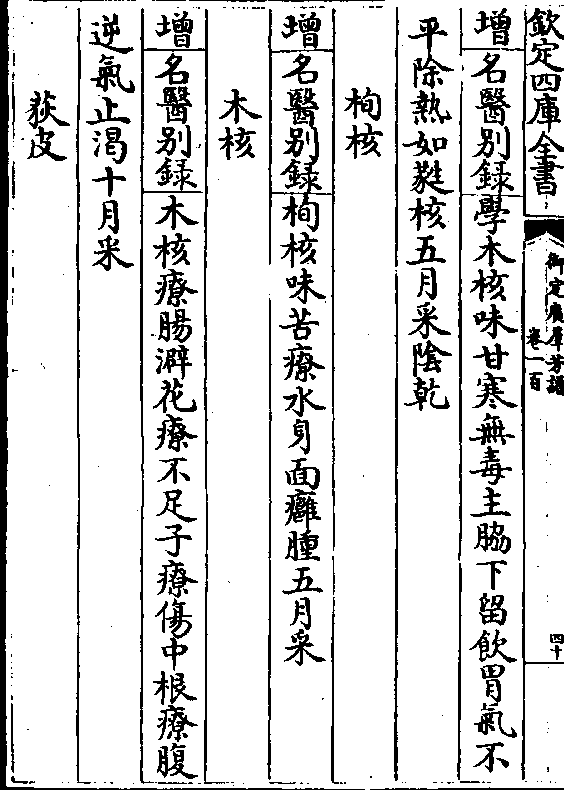 欽定四庫全書
御定廣羣芳譜
卷一百
四十
增名醫别録學木核味甘寒無毒主脇下留飲胃氣不
平除熱如蕤核五月采陰乾
栒核
增名醫别録栒核味苦療水身面癰腫五月采
木核
增名醫别録木核療腸澼花療不足子療傷中根療腹
逆氣止渴十月采
荻皮